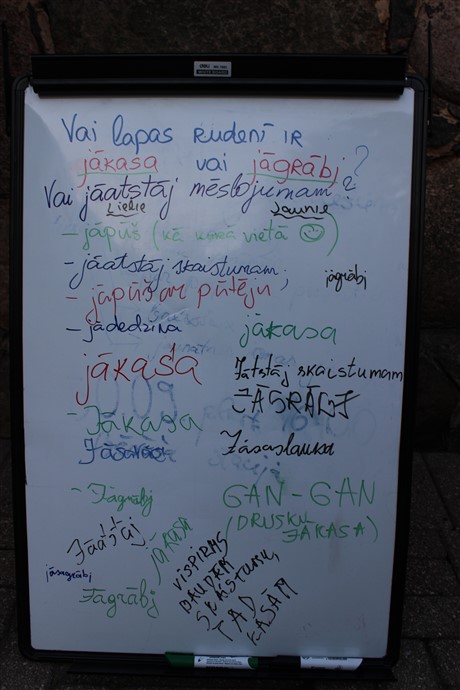 Vai lapas rudenī ir
jākasa vai jāgrābj?
Vai jāatstāj mēslojumam?
Lielie Jaunie
- jāpūš (kā kurā vietā ☺)
- jāatstāj skaistumam;
jāgrābj
- jāpūš ar pūtēju
- jādedzina
jākasa
jākaša
Jātstāj skaistumam
JĀGRĀBJ
- Jākasa
Jāsaslauka
- Jāgrābj
GAN-GAN
(DRUSKU JĀKASA)
jākasa
VISPIRMS
BAUDĀM
SKAISTUMU,
TAD
KASĀM
jāsagrābj
Jāgrābj